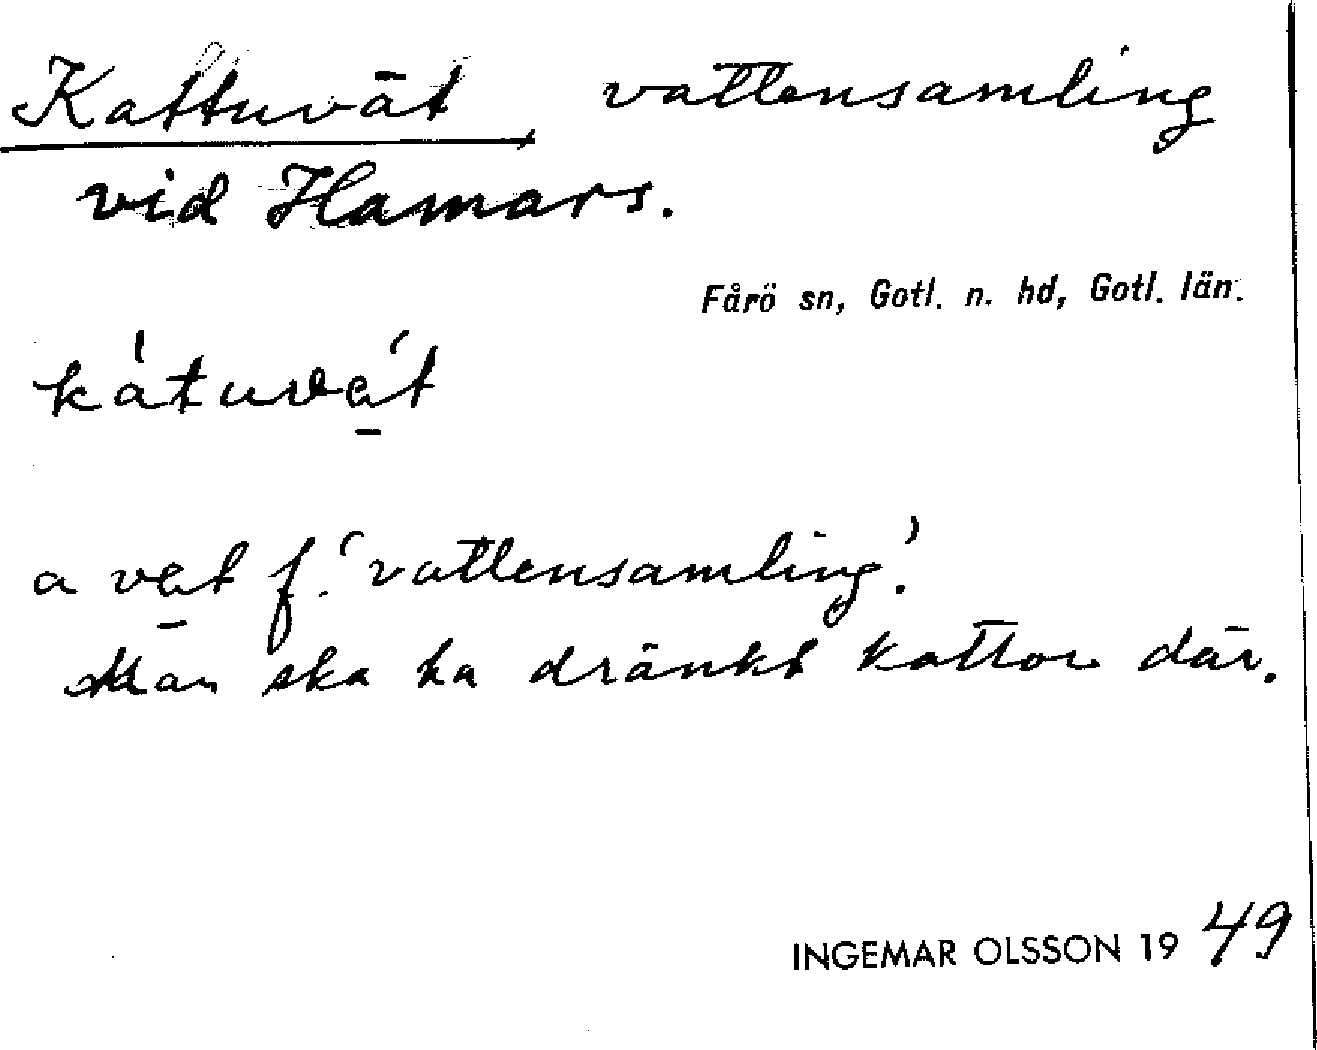 Kattuvät, vattensamling
vid Hamars.
Fårö sn, Gotl. n. hd, Gotl. län.
a vät f. 'vattensamling'.
Man ska ha dränkt kattor där.
INGEMAR OLSSON 1949